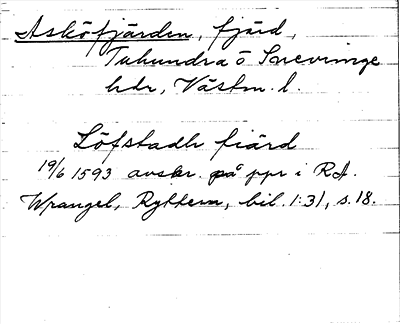 Asköfjärden, fjärd,
Tuhundra o Snevringe
hdr, Västm. l.
Löfstadh fiärd
19/6 1593 avskr. på ppr i RA.
Wrangel, Ryttern, bil. 1:31, s. 18.